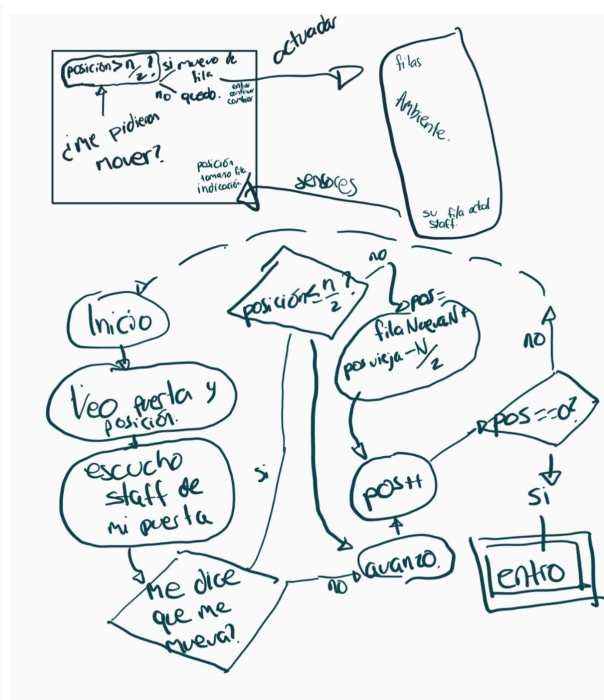 actuador
posición > n/2? si muevo de
fila
no quedo.
¿me pidieron
mover?
posición
tamaño fila
indicación
sensores
filas
Ambiente.
su fila actual
staff.
Inicio
Veo puerta y
posición.
escucho
staff de
mi puerta
Me dice
que me
mueva?
si
no
posición ≤ n/2?
no
pos=
fila Nueva N+
pos vieja - N/2
avanzo.
pos++
pos==0?
no
si
entro